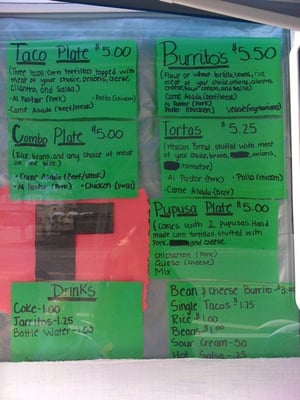 Taco Plate $5.00
(Three tacos: corn tortillas topped with
meat of your choice, onions, cheese,
Cilantro, and Salsa)
-Al Pastor (Pork) Pollo (chicken)
-Carne Asada (Beef/steak)
Combo Plate $5.00
(Rice, beans, and any choice of meat
on the side)
-Carne Asada (Beef/steak)
-Al Pastor (Pork) - Chicken (Pollo)
Drinks
Coke-1.00
Jarritos-1.25
Bottle Water-1.00
Burritos $5.50
(Flour or wheat tortilla, beans, rice
meat of your choice, onions, cilantro,
cheese, sour cream, and salsa)
Carne Asada (Beef/steak)
Al Pastor (Pork)
Pollo (chicken)
Tortas $5.25
(Mexican Bread stuffed with meat
of your choice, onions,
tomatoes)
-Al Pastor (Pork) - Pollo (chicken)
-Carne Asada (Beef)
Pupusa Plate $5.00
(Comes with 2 Pupusas Hand
made corn tortillas stuffed with
Pork, and cheese.
chicharron (Pork)
Queso (cheese)
Mix
Bean & Cheese Burrito
Single Tacos $1.75
Rice $1.00
Beans $1.00
Sour Cream .50
Hot Salsa .25